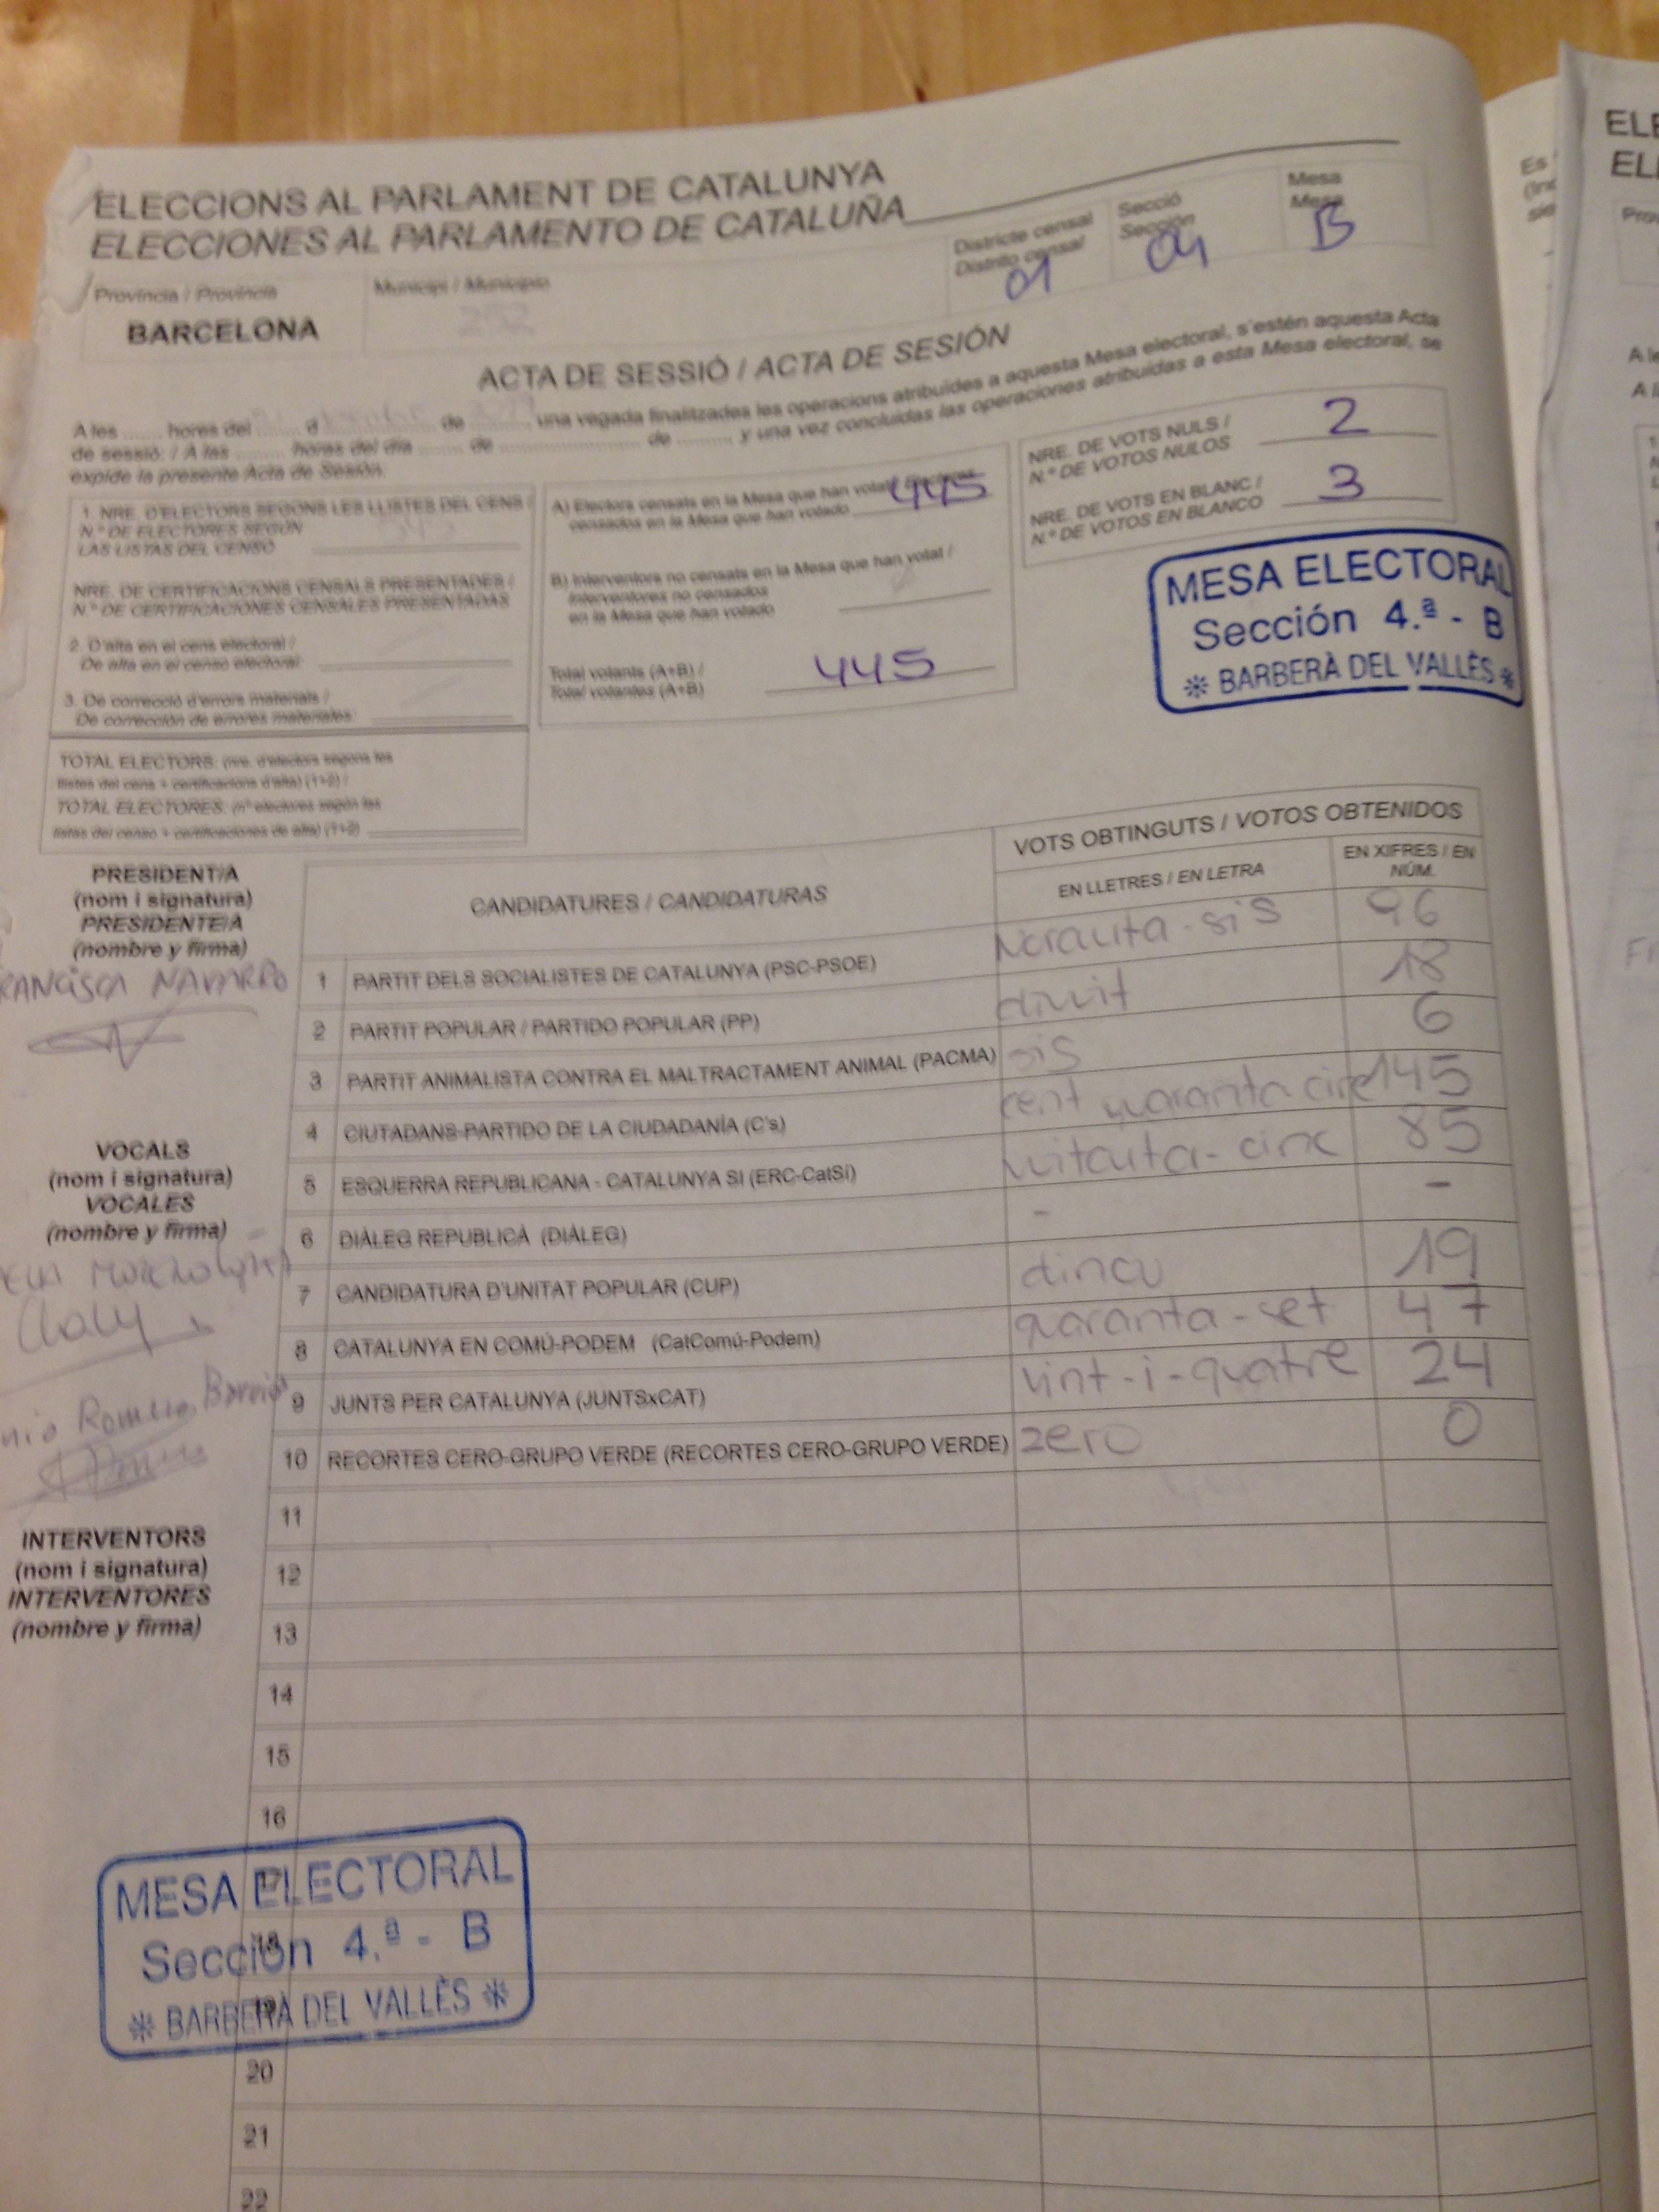 ELECCIONS AL PARLAMENT DE CATALUNYA
ELECCIONES AL PARLAMENTO DE CATALUÑA
Districte censal
Distrito censal
01
Secció
Sección
04
Mesa
Mesa
B
Província / Provincia
BARCELONA
Municipi / Municipio
252
ACTA DE SESSIÓ / ACTA DE SESIÓN
A les ........ hores del ........ d ........ de ........ una vegada finalitzades les operacions atribuïdes a aquesta Mesa electoral, s'estén aquesta Acta
de sessió: / A las ........ horas del día ........ de ........ de ........ y una vez concluidas las operaciones atribuidas a esta Mesa electoral, se
expide la presente Acta de Sesión:
1. NRE. D'ELECTORS SEGONS LES LLISTES DEL CENS /
N.º DE ELECTORES SEGÚN
LAS LISTAS DEL CENSO
NRE. DE CERTIFICACIONS CENSALS PRESENTADES /
N.º DE CERTIFICACIONES CENSALES PRESENTADAS
2. D'alta en el cens electoral /
De alta en el censo electoral
3. De correcció d'errors materials /
De corrección de errores materiales:
TOTAL ELECTORS: (nre. d'electors segons les
llistes del cens + certificacions d'alta) (1+2) /
TOTAL ELECTORES: (nº electores según las
listas del censo + certificaciones de alta) (1+2)
A) Electors censats en la Mesa que han votat / Electores
censados en la Mesa que han votado 445
B) Interventors no censats en la Mesa que han votat /
Interventores no censados
en la Mesa que han votado
Total votants (A+B) /
Total votantes (A+B) 445
NRE. DE VOTS NULS /
N.º DE VOTOS NULOS 2
NRE. DE VOTS EN BLANC /
N.º DE VOTOS EN BLANCO 3
MESA ELECTORAL
Sección 4.ª - B
* BARBERÀ DEL VALLÈS *
PRESIDENT/A
(nom i signatura)
PRESIDENTE/A
(nombre y firma)
FRANCISCA NAVARRO
VOCALS
(nom i signatura)
VOCALES
(nombre y firma)
Romero
INTERVENTORS
(nom i signatura)
INTERVENTORES
(nombre y firma)
CANDIDATURES / CANDIDATURAS
VOTS OBTINGUTS / VOTOS OBTENIDOS
EN LLETRES / EN LETRA
EN XIFRES / EN
NÚM.
1 PARTIT DELS SOCIALISTES DE CATALUNYA (PSC-PSOE) Noranta-sis 96
2 PARTIT POPULAR / PARTIDO POPULAR (PP) divuit 18
3 PARTIT ANIMALISTA CONTRA EL MALTRACTAMENT ANIMAL (PACMA) sis 6
4 CIUTADANS-PARTIDO DE LA CIUDADANÍA (C's) cent quaranta cinc 145
5 ESQUERRA REPUBLICANA - CATALUNYA SÍ (ERC-CatSí) vuitanta-cinc 85
6 DIÀLEG REPUBLICÀ (DIÀLEG) - -
7 CANDIDATURA D'UNITAT POPULAR (CUP) dinou 19
8 CATALUNYA EN COMÚ-PODEM (CatComú-Podem) quaranta-set 47
9 JUNTS PER CATALUNYA (JUNTSxCAT) vint-i-quatre 24
10 RECORTES CERO-GRUPO VERDE (RECORTES CERO-GRUPO VERDE) zero 0
11
12
13
14
15
16
17
18
19
20
21
22
MESA ELECTORAL
Sección 4.ª - B
* BARBERÀ DEL VALLÈS *